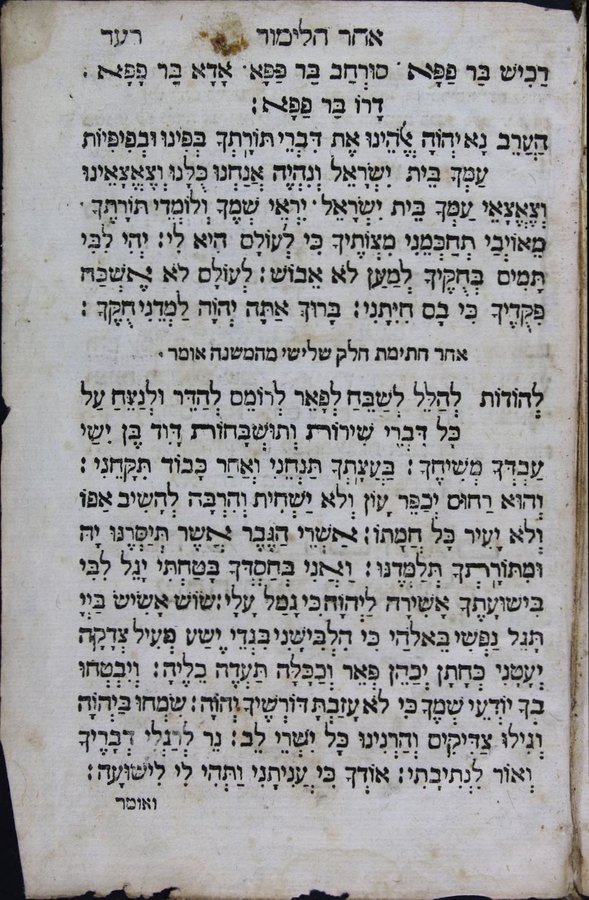 אחר הלימוד רעד
רַכִישׁ בַּר פַּפָּא· סוּרְחַב בַּר פַּפָּא· אָדָא בַּר פָּפָּא·
דָרוּ בַּר פַּפָּא:
הַעֲרֵב נָא יְהֹוָה אֱלֹהֵינוּ אֶת דִּבְרֵי תּוֹרָתְךָ בְּפִינוּ וּבְפִיפִיּוֹת
עַמְּךָ בֵּית יִשְׂרָאֵל וְנִהְיֶה אֲנַחְנוּ כֻּלָּנוּ וְצֶאֱצָאֵינוּ
וְצֶאֱצָאֵי עַמְּךָ בֵּית יִשְׂרָאֵל· יִרְאֵי שְׁמֶךָ וְלוֹמְדֵי תוֹרָתֶךָ·
מֵאוֹיְבַי תְּחַכְּמֵנִי מִצְוֹתֶיךָ כִּי לְעוֹלָם הִיא לִי: יְהִי לִבִּי
תָמִים בְּחֻקֶּיךָ לְמַעַן לֹא אֵבוֹשׁ: לְעוֹלָם לֹא אֶשְׁכַּח
פִּקּוּדֶיךָ כִּי בָם חִיִּיתָנִי: בָּרוּךְ אַתָּה יְהֹוָה לַמְּדֵנִי חֻקֶּךָ:
אחר חתימת חלק שלישי מהמשנה אומר·
לְהוֹדוֹת לְהַלֵּל לְשַׁבֵּחַ לְפָאֵר לְרוֹמֵם לְהַדֵּר וּלְנַצֵּחַ עַל
כָּל דִּבְרֵי שִׁירוֹת וְתוּשְׁבָּחוֹת דָּוִד בֶּן יִשַׁי
עַבְדְּךָ מְשִׁיחֶךָ: בַּעֲצָתְךָ תַנְחֵנִי וְאַחַר כָּבוֹד תִּקָּחֵנִי:
וְהוּא רַחוּם יְכַפֵּר עָוֹן וְלֹא יַשְׁחִית וְהִרְבָּה לְהָשִׁיב אַפּוֹ
וְלֹא יָעִיר כָּל חֲמָתוֹ: אַשְׁרֵי הַגֶּבֶר אֲשֶׁר תְּיַסְּרֶנּוּ יָהּ
וּמִתּוֹרָתְךָ תְלַמְּדֶנּוּ: וַאֲנִי בְּחַסְדְּךָ בָטַחְתִּי יָגֵל לִבִּי
בִּישׁוּעָתֶךָ אָשִׁירָה לַיְהֹוָה כִּי גָמַל עָלָי: שׂוֹשׂ אָשִׂישׂ בַּיְיָ
תָּגֵל נַפְשִׁי בֵּאלֹהַי כִּי הִלְבִּישַׁנִי בִּגְדֵי יֶשַׁע מְעִיל צְדָקָה
יְעָטָנִי כֶּחָתָן יְכַהֵן פְּאֵר וְכַכַּלָּה תַּעְדֶּה כֵלֶיהָ: וְיִבְטְחוּ
בְךָ יוֹדְעֵי שְׁמֶךָ כִּי לֹא עָזַבְתָּ דּוֹרְשֶׁיךָ יְהֹוָה: שִׂמְחוּ בַיְהֹוָה
וְגִילוּ צַדִּיקִים וְהַרְנִינוּ כָּל יִשְׁרֵי לֵב: נֵר לְרַגְלִי דְבָרֶיךָ
וְאוֹר לִנְתִיבָתִי: אוֹדְךָ כִּי עֲנִיתָנִי וַתְּהִי לִי לִישׁוּעָה:
ואומר